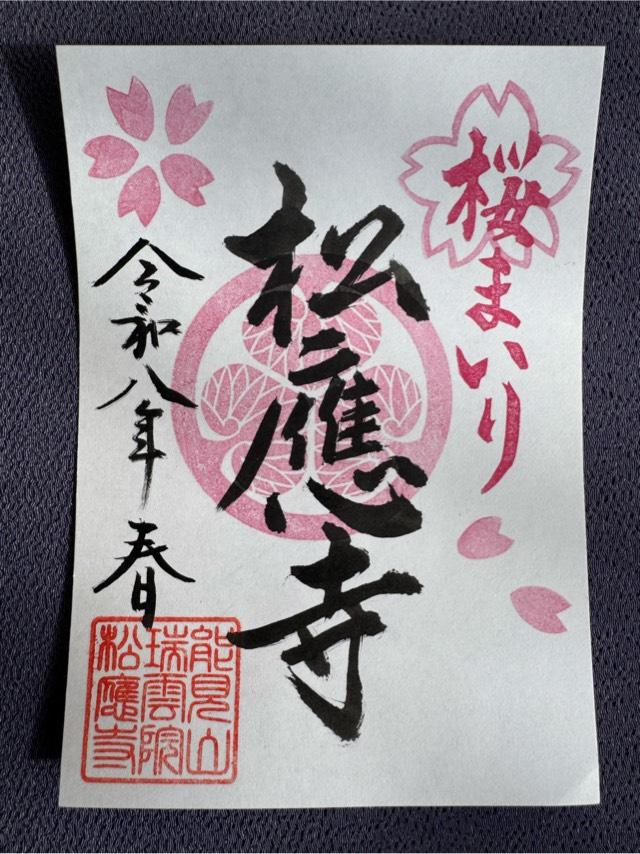 桜まいり
松應寺
令和八年 春
能見山
瑞雲院
松應寺